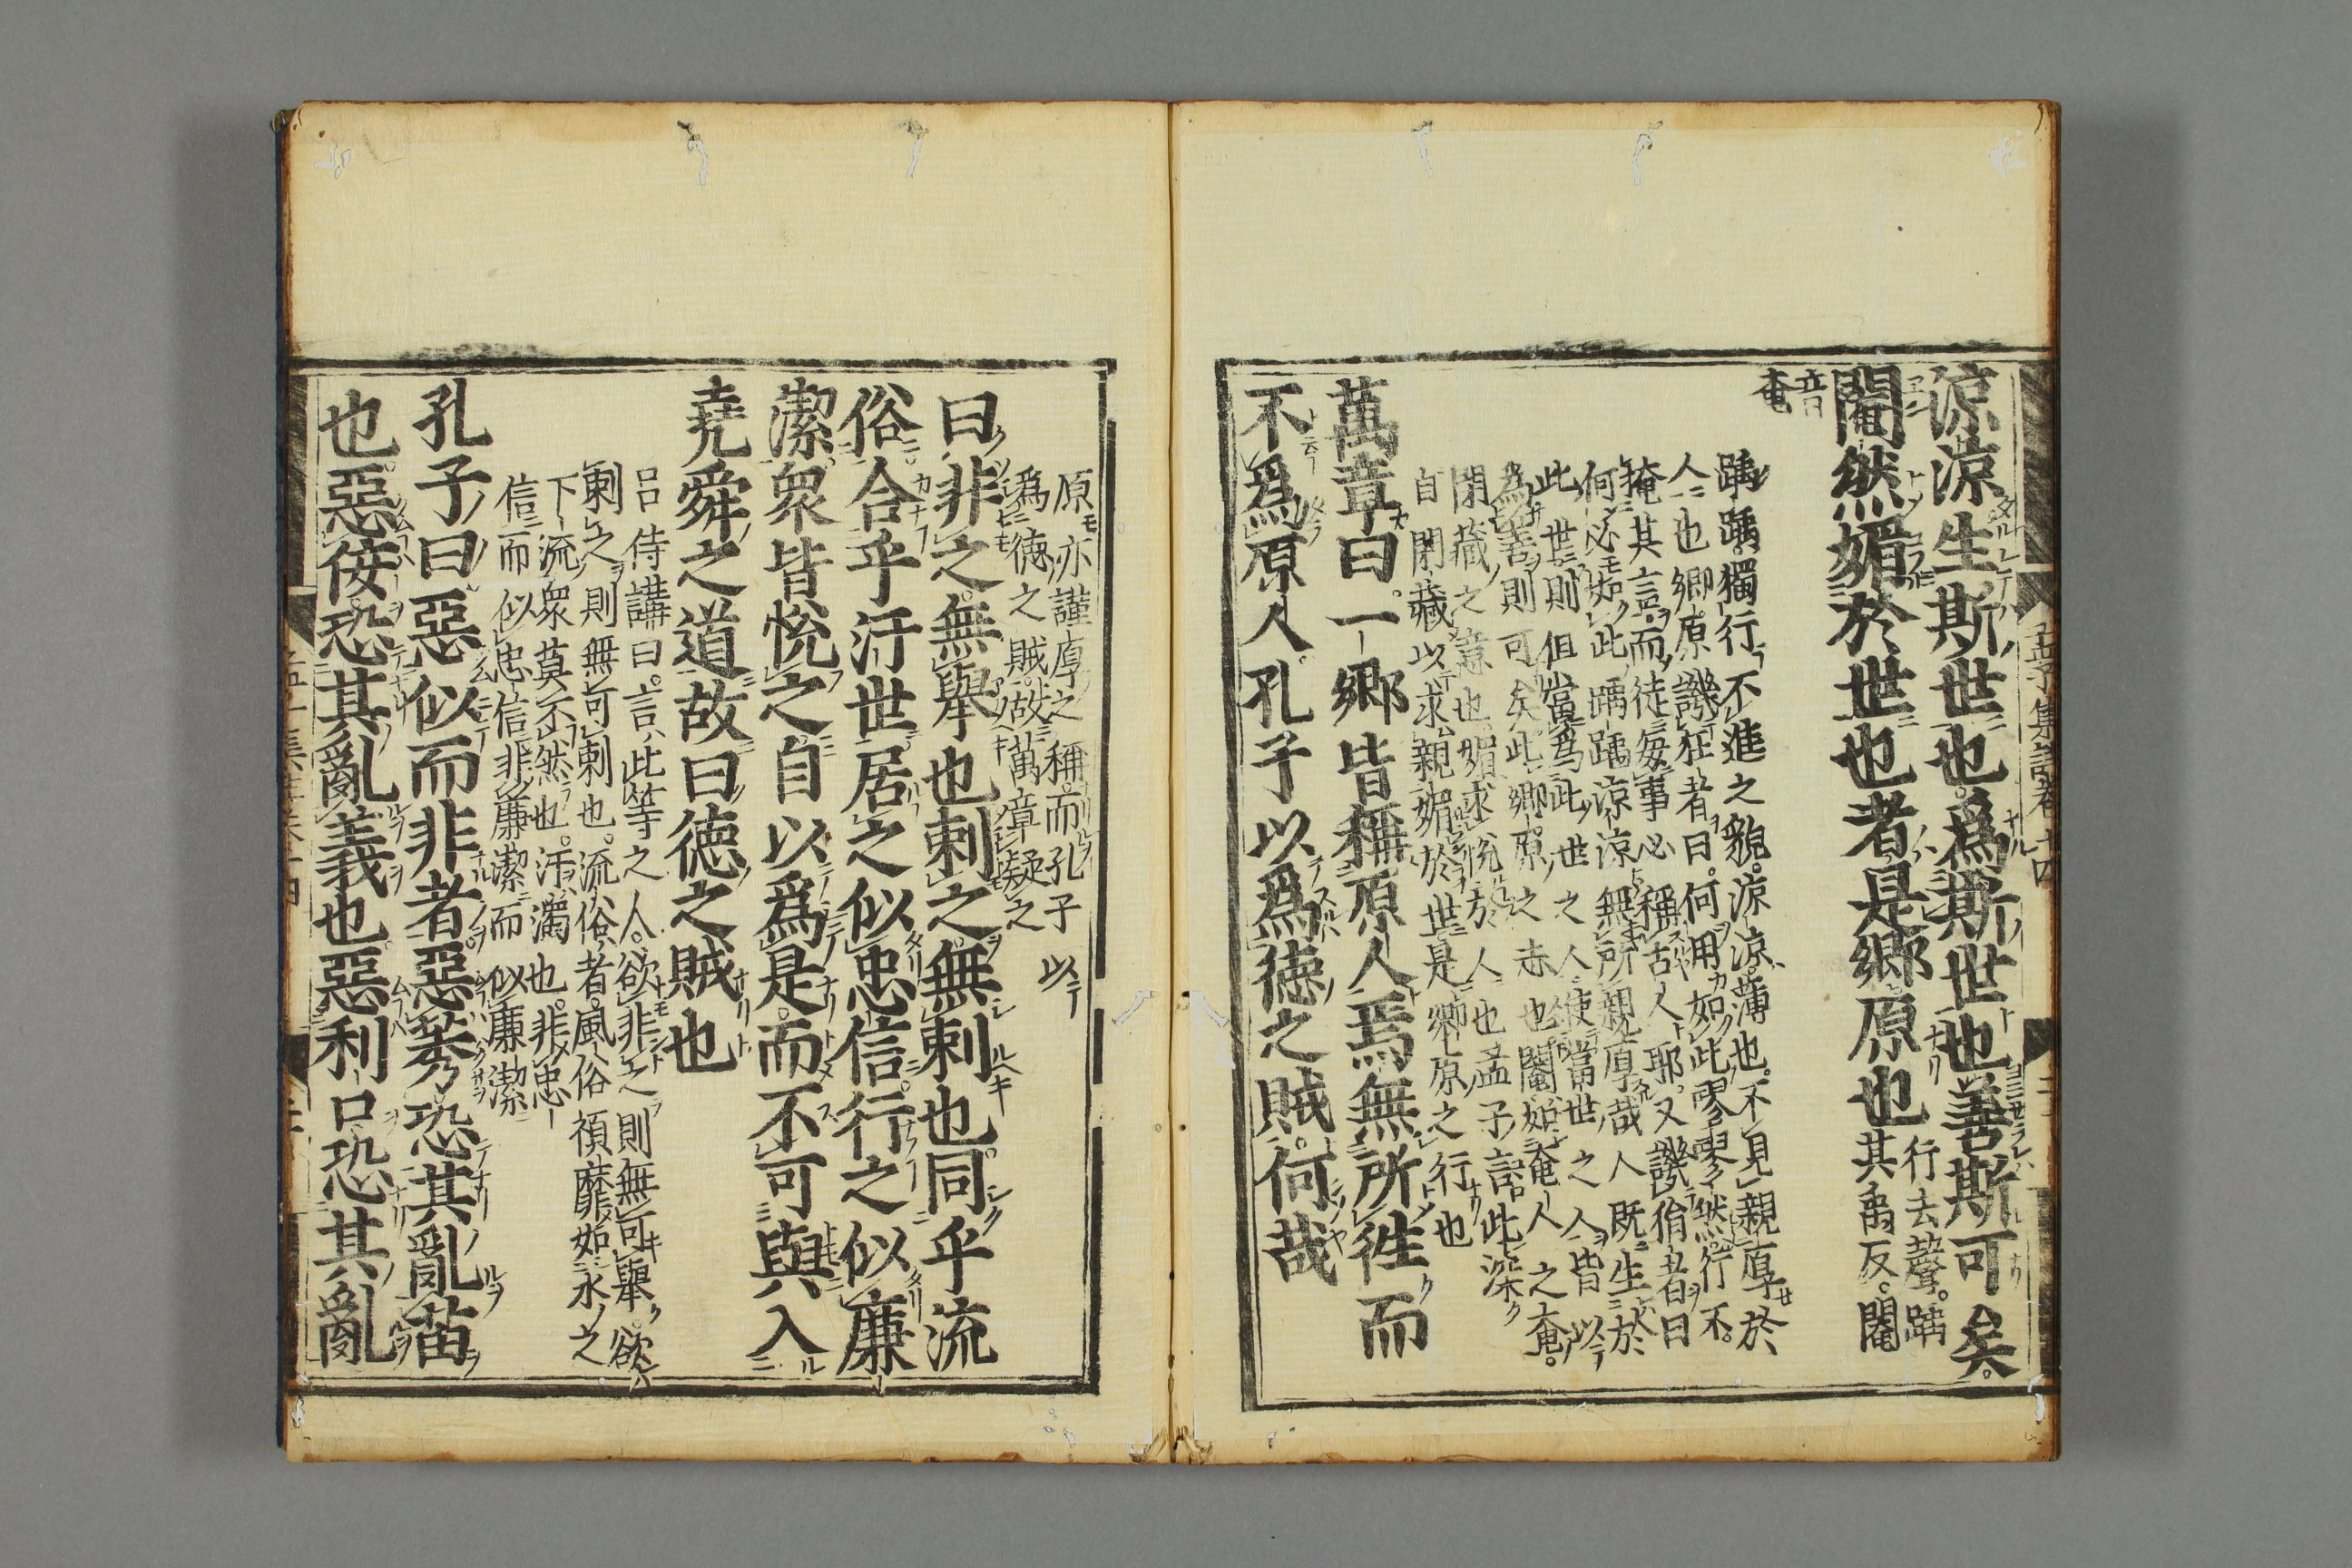 涼涼生斯世也爲斯世也善斯可矣。
閹然媚於世也者是鄉原也
行去聲。踽
其禹反。閹
音
奄
踽踽。獨行不進之貌。涼涼。薄也。不見親厚於
人也鄉原譏狂者曰。何用如此嘐嘐然。行不。
掩其言。而徒每事必稱古人耶。又譏狷者曰
何必如此踽踽涼涼無所親厚哉人既生於
此世則但當爲此世之人。使當世之人皆以
爲善則可矣。此鄉原之志也閹如奄人之奄。
閉藏之意也。媚求悅於人也孟子言此深
自閉藏以求親媚於世是鄉原之行也
萬章曰。一鄉皆稱原人焉無所徃而
不爲原人。孔子以爲德之賊。何哉
原亦謹厚之稱。而孔子以
爲德之賊。故萬章疑之
曰非之。無舉也刺之。無刺也同乎流
俗。合乎汙世居之似忠信。行之似廉
潔衆皆悅之自以爲是。而不可與入
堯舜之道故曰德之賊也
呂侍講曰。言此等之人。欲非之則無可舉。欲
刺之則無可刺也。流俗者。風俗頹靡如水之
下流衆莫不然也。汙濁也。非忠
信而似忠信非廉潔而似廉潔
孔子曰惡似而非者惡莠。恐其亂苗
也惡佞恐其亂義也惡利口恐其亂